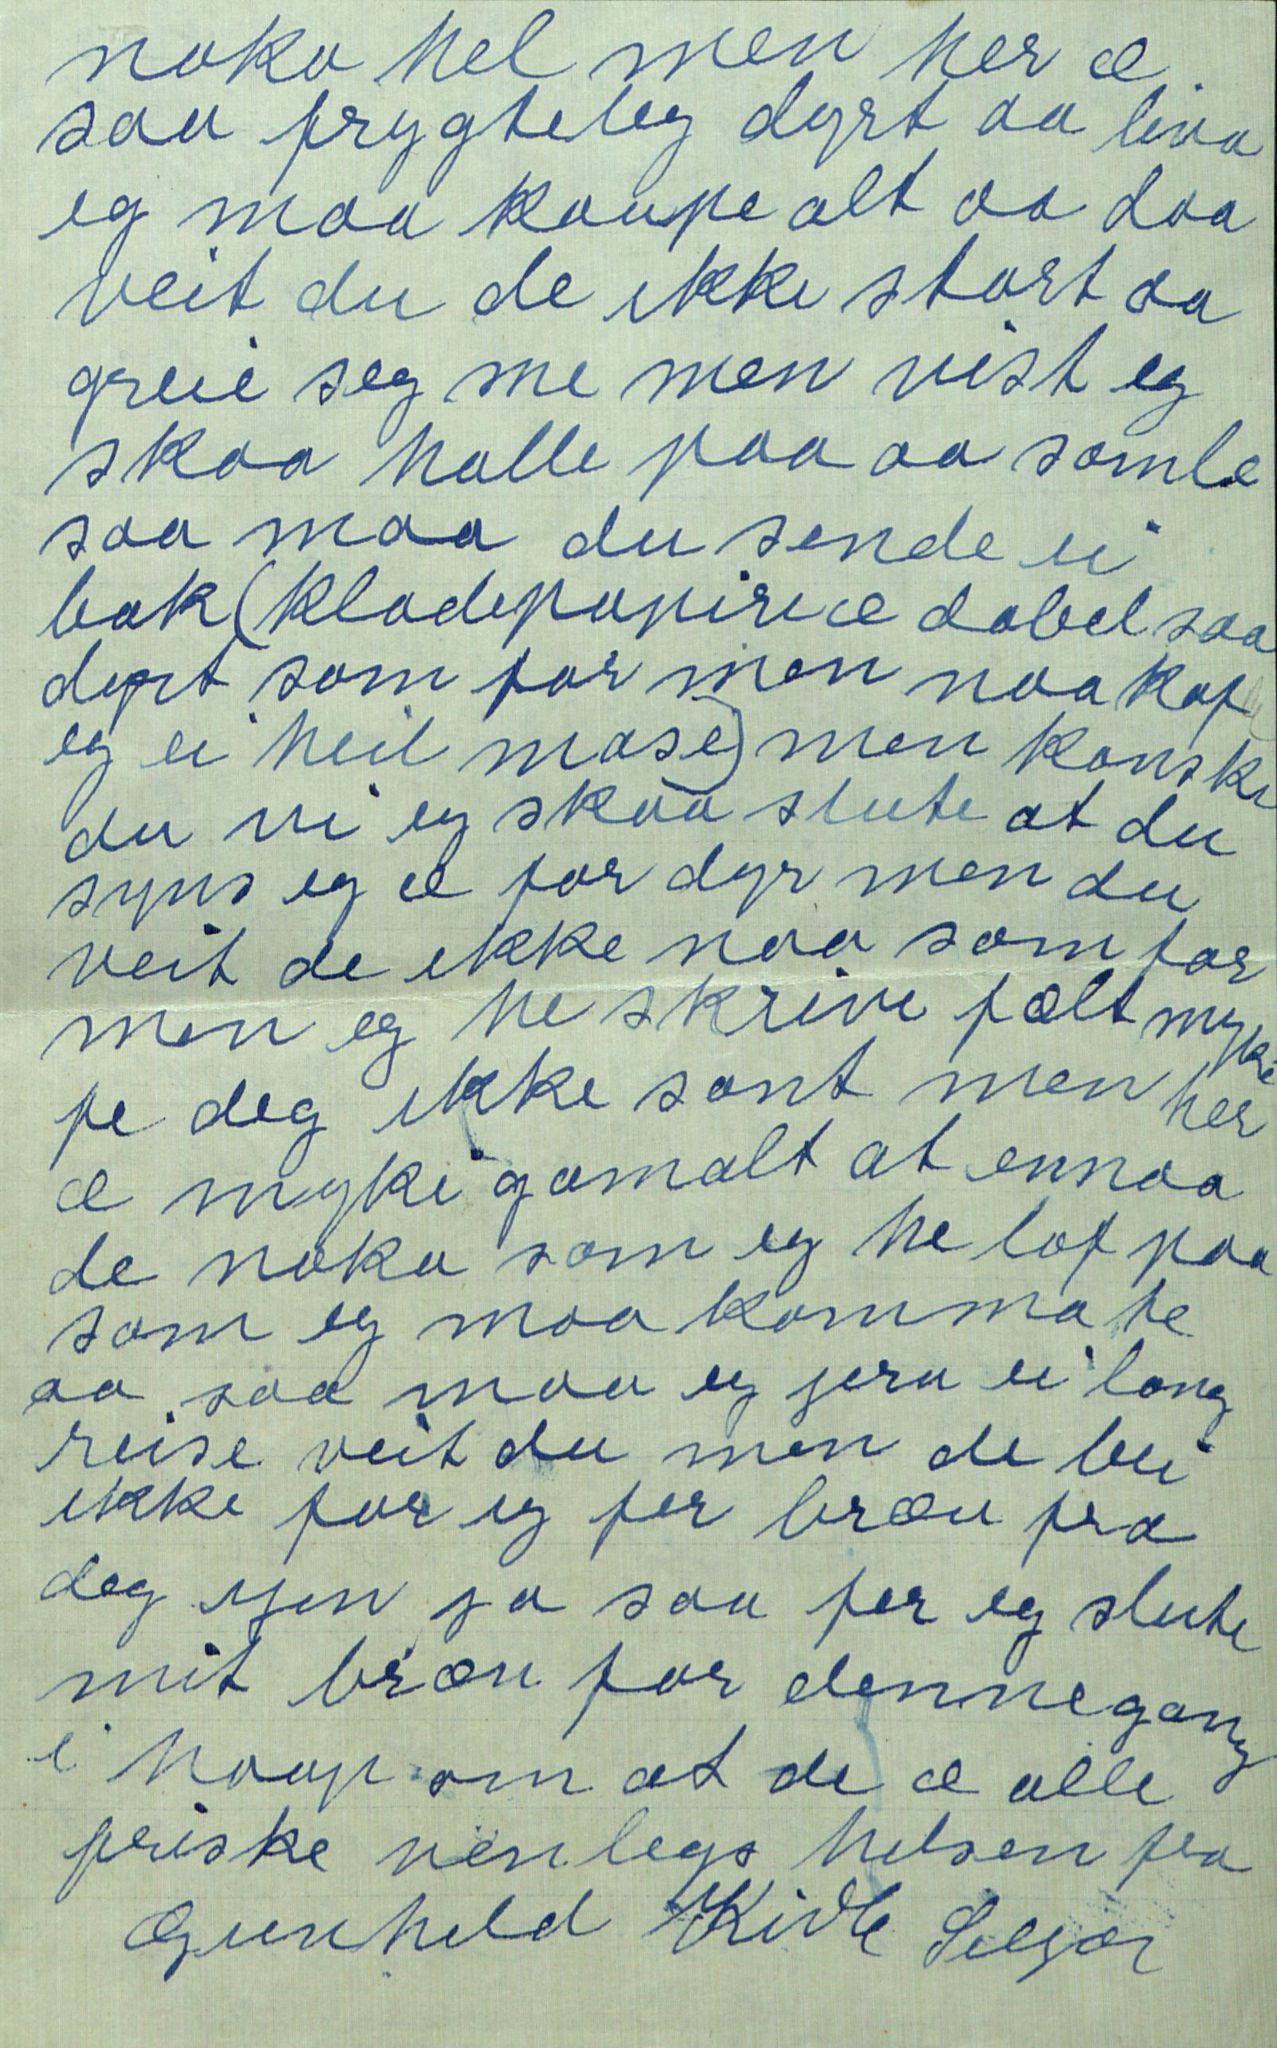 noko hel men her æ
saa frygteleg dyrt aa liva
eg maa kaupe alt aa daa
veit du de ikke stort aa
greie seg me men vist eg
skaa halle paa aa samle
saa maa du sende ei
bok (kladepapire æ dobel saa
dyrt som før men naa køfte
eg ei heil mase) men kanske
du vi eg skaa slute at du
syns eg æ for dyr men du
veit de ikke naa som før
men eg he skrive fælt mykje
te deg ikke sant men her
æ myki gamalt at ennaa
de noko som eg he lof paa
som eg maa komma te
aa saa maa eg jera ei lang
reise veit du men de bli
ikke før eg fer bræu fra
deg ijen ja saa fer eg slute
mit bræu for dennegang
i haap om at de æ alle
friske venlegs helsen fra
Gunhild Kivle Seljor